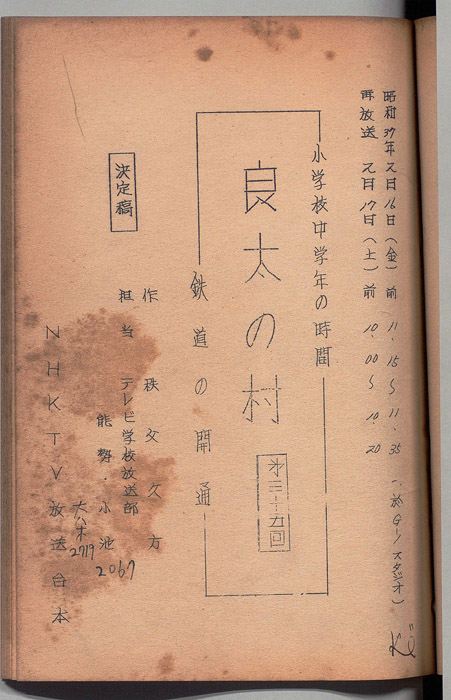 昭和37年2月16日（金）前11.15〜11.35
再放送 2月17日（土）前10.00〜10.20
（於G-1スタジオ）
小学校中学年の時間
良太の村
第三十九回
鉄道の開通
決定稿
作 秩父久方
担当 テレビ学校放送部
能勢・小池
2719
2067
NHKTV放送台本